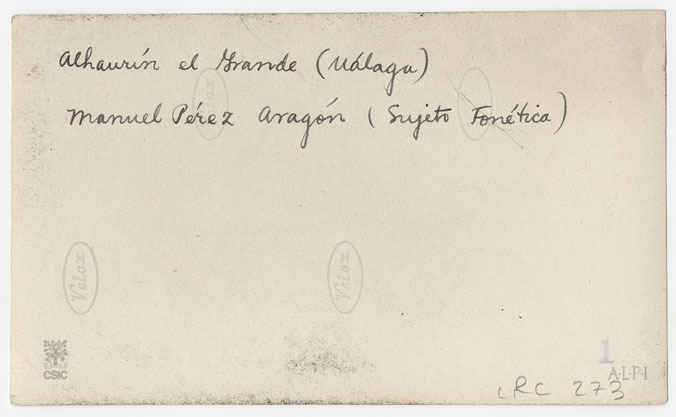 Alhaurín el Grande (Málaga)
Manuel Pérez Aragón (Sujeto Fonética)
Velox
Velox
Velox
CSIC
1
A·L·P·I
LRC 273